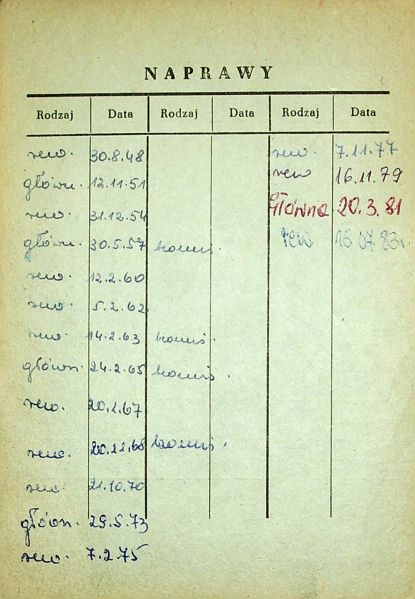 NAPRAWY
Rodzaj Data Rodzaj Data Rodzaj Data
rew. 30.8.48 rew. 7.11.77
główn. 12.11.51 rew 16.11.79
rew. 31.12.54 Główna 20.3.81
główn. 30.5.57 komis. rew 16.07.83r.
rew. 12.2.60
rew. 5.2.62
rew. 14.2.63 komis.
główn. 24.2.65 komis.
rew. 20.2.67
rew. 20.11.68 komis.
rew. 21.10.70
główn. 29.5.73
rew. 7.2.75